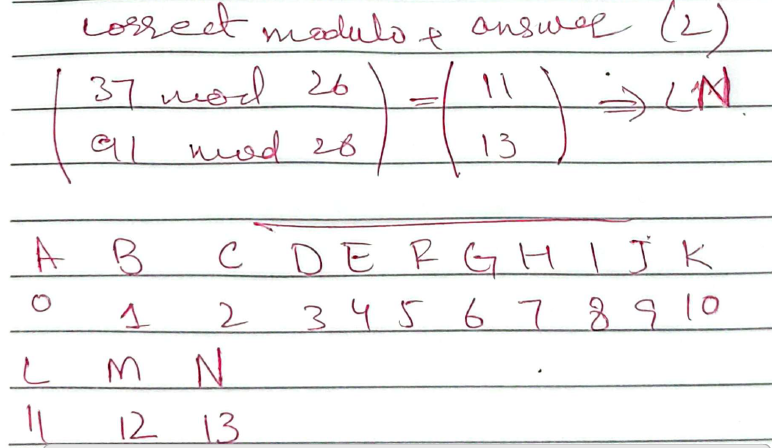 correct modulo & answer (2)
(37 mod 26) = (11) ⇒ LN.
(91 mod 26) (13)
A B C D E F G H I J K
0 1 2 3 4 5 6 7 8 9 10
L M N
11 12 13